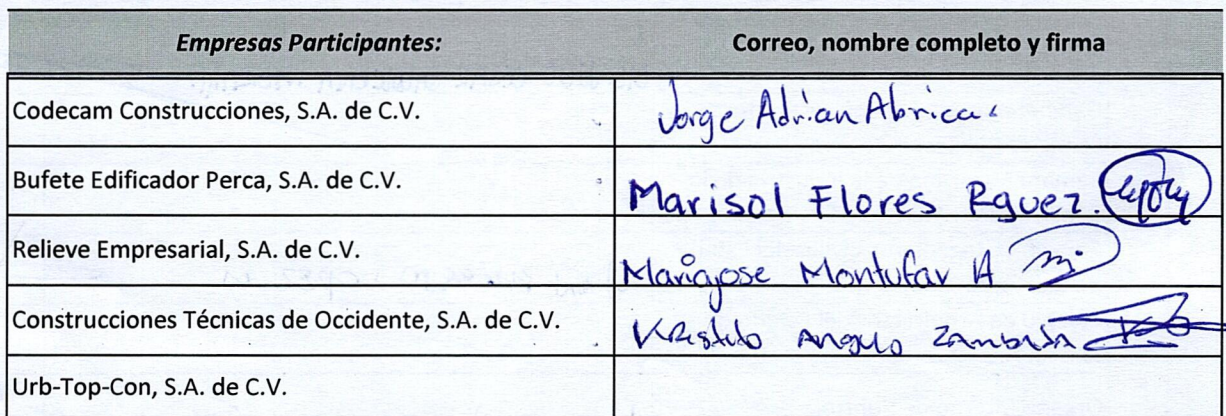 Empresas Participantes: Correo, nombre completo y firma
Codecam Construcciones, S.A. de C.V. Jorge Adrian Abrica
Bufete Edificador Perca, S.A. de C.V. Marisol Flores Rguez.
Relieve Empresarial, S.A. de C.V. Mariajose Montufar A
Construcciones Técnicas de Occidente, S.A. de C.V. Angulo
Urb-Top-Con, S.A. de C.V.